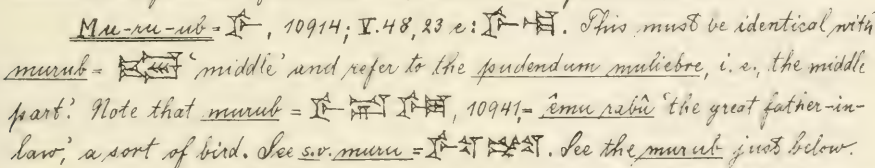 Mu-ru-ub = 𒊩, 10914; V. 48, 23 e: 𒊩. This must be identical with
murub = 'middle' and refer to the pudendum muliebre, i. e., the middle
part'. Note that murub = 𒊩 𒊩, 10941, = êmu rabû 'the great father-in-
law', a sort of bird. See s.v. muru = 𒊩. See the murub just below.